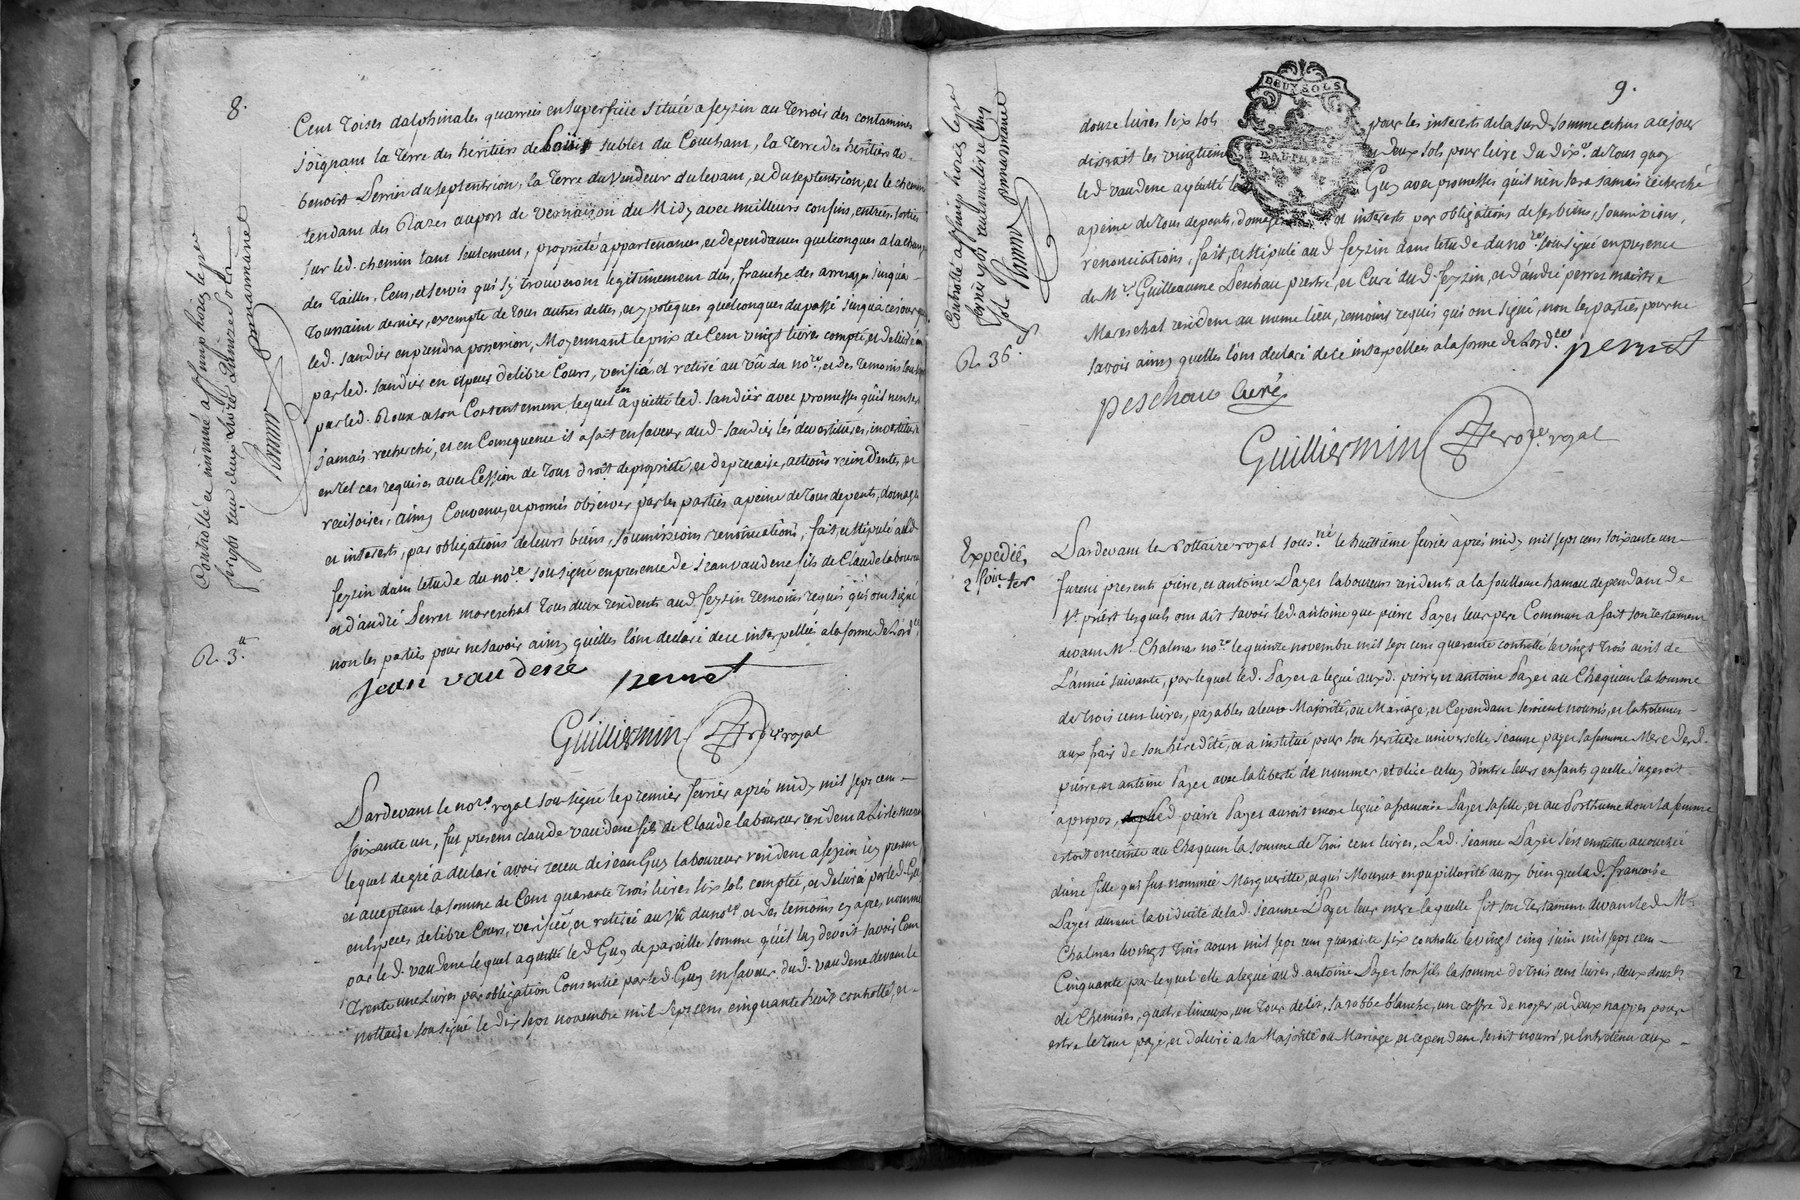 8.
Cent toises dalphinales quarrées en superficie située a feyzin au terroir des contamines
joignant la terre des héritiers de Loüis sublet du Couchant, la terre des héritiers de
benoist Perrin du septentrion, la terre du vendeur du levant, et du septentrion, et le chemin
tendant des Razes au port de vernaison du Midy avec meilleurs confins, entrées, sorties
sur led. chemin tant seulement, proprieté appartenances, et dependances quelconques a la charge
des tailles, Cens, et servis qui s'y trouveront legitimement dus, franche des arrerages jusqu'a
Toussaint dernier, exempte de tous autres dettes, et ypoteques quelconques du passé jusqu'a ce jour
led. sandier en prendra possession, Moyennant le prix de Cent vingt livres compté, et delivré
par led. sandier en espèces de libre Cours, verifié, et retiré au vû du no.re, et des temoins
par led. Roux a son Contentement, lequel en a quitté led. sandier avec promesses qu'il n'en sera
jamais recherché, et en Consequence il a fait en faveur dud. sandier les devestitures, investitures
en tel cas requises avec Cession de tous droit de proprieté, et de precaire, actions rescindantes, et
rescisoires, ainsy Convenu, et promis observer par les parties a peine de tous depents, domages
et interests, par obligations de leurs biens, soumissions renonciations, fait, et stipulé aud.
feyzin dans letude du no.re sousigné en presence de jean vaudene fils de Claude laboureur
et d'andré Perret mareschal tous deux residents aud. feyzin temoins requis qui ont signé
non les parties pour ne savoir ainsy qu'elles l'ont declaré de ce interpellées a la forme de l'ord.ce
jean vaudene perret
Guilliermin no.re royal
Pardevant le no.re royal sousigné le premier février après midy mil sept cent
soixante un, fut present claude vaudene fils de Claude laboureur resident a
lequel de gré a declaré avoir receu de jean Guy laboureur resident a feyzin icy present
et acceptant la somme de Cent quarante trois livres six sols comptée, et delivrée par led. Guy
en especes de libre Cours, verifiée, et retirée au vû du no.re et des temoins cy apres nommés
par led. vaudene lequel a quitté led. Guy de pareille somme qu'il luy devoit savoir Cent
Trente une Livres par obligation Consentie par led. Guy en faveur dud. vaudene devant le
nottaire sousigné le dix sept novembre mil sept cent cinquante huit controllée, et
Controllé et
R. 3.
9.
DEUX SOLS
DAUPHINÉ
douze livres six sols pour les interests de la susd. somme echus a ce jour
distrait les vingtiemes deux sols pour livre du dix.e de tous quoy
led. vaudene a quitté led. Guy avec promesses qu'il n'en sera jamais recherché
a peine de tous depents, domages et interests par obligations de ses biens, soumissions,
renonciations, fait, et stipulé aud. feyzin dans letude du no.re sousigné en presence
de M.re Guilleaume Peschau prestre, et Curé dud. feyzin, et d'andré perret maistre
Mareschal resident au meme lieu, temoins requis qui ont signé, non les parties pour ne
savoir ainsy quelles l'ont declaré de ce interpellées a la forme de l'ord.ce perret
peschau Curé
Guilliermin no.re royal
R. 36.
Expedié,
Pardevant le Nottaire royal sous.né le huittième février après midy mil sept cent soixante un
furent presents pierre, et antoine Payet laboureurs residents a la fouillouse hameau dependant de
st. priest lesquels ont dit savoir led. antoine que pierre Payet leur pere Commun a fait son testament
devant M.e Chalmas no.re le quinze novembre mil sept cent quarante controllé le vingt trois avril de
L'année suivante, par lequel led. Payet a legué auxd. pierre, et antoine Payet au Chaquun la somme
de trois cent livres, payables a leur Majorité, ou Mariage, et Cependant seroient nourris, et entretenus
aux frais de son hérédité, et a institué pour son heritiere universelle jeanne payet sa femme Mere desd.
pierre et antoine Payet avec la liberté de nommer, et elire celuy d'entre leurs enfants quelle jugeroit
apropos, led pierre Payet auroit encore legué a francoise Payet sa fille, et au Posthume dont sa femme
estoit enceinte au Chaquun la somme de Trois cent livres, Lad. jeanne Payet s'est ensuitte accouchée
d'une fille qui fut nommée Margueritte, et qui Mourut en pupillarité aussy bien que lad. francoise
Payet durant la viduité de lad. jeanne Payet leur mere laquelle fit son testament devant led. M.e
Chalmas le vingt trois aoust mil sept cent quarante six controllé le vingt cinq juin mil sept cent
Cinquante par lequel elle a legué aud. antoine Payet son fils la somme de trois cent livres, deux douz.es
de Chemises, quatre linceux, un tour de lit, sa robbe blanche, un coffre de noyer, et deux nappes pour
estre le tout payé, et delivré a sa Majorité ou Mariage, et cependant seroit nourri, et entretenu aux